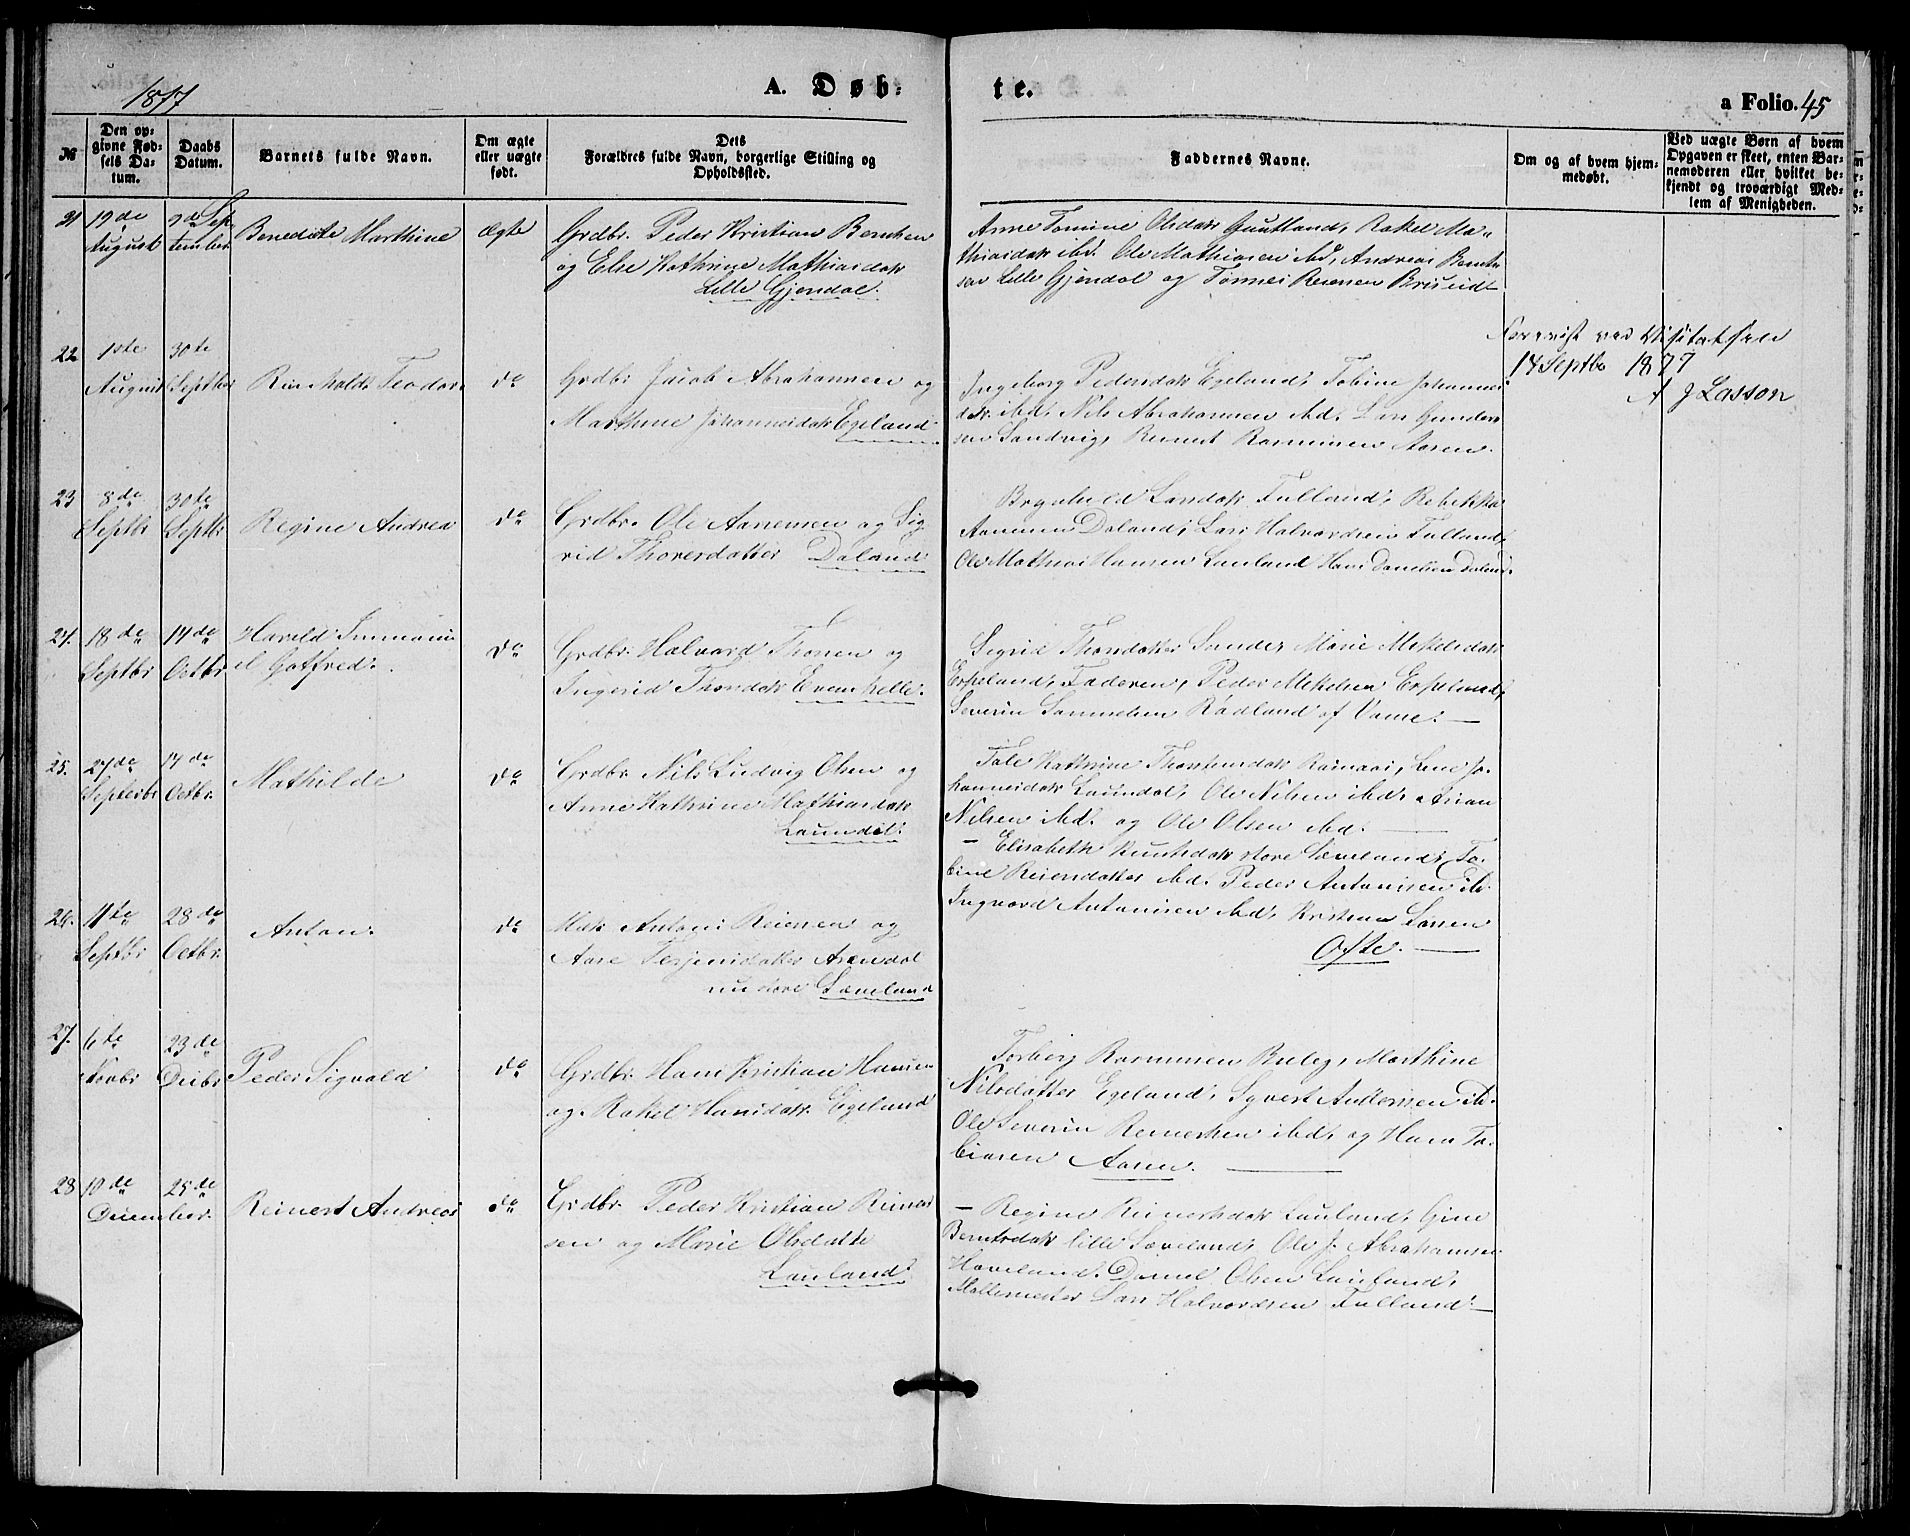 1877
A. Døb-
te.
a Folio. 45
№
Den op-
givne Fød-
sels Da-
tum.
Daabs
Datum.
Barnets fulde Navn.
Om ægte
eller uægte
født.
Dets
Forældres fulde Navn, borgerlige Stilling og
Opholdssted.
Faddernes Navne.
Om og af hvem hjem-
medøbt.
Ved uægte Børn af hvem
Opgaven er skeet, enten Bar-
nemoderen eller hvilket be-
kjendt og troværdigt Med-
lem af Menigheden.
21
19de
August
9de Sep-
tember
Benedikte Marthine
Ægte
Grdbr. Peder Kristian Berntsen
og Else Kathrine Mathiasdatr
Lille Gjendal.
Anne Tomine Olsdatr Rakel Ma-
thiasdatr ibd. Ole Mathiasen ibd, Andreas Bernt-
sen Lille Gjendal og Tønnes
22
1ste
August
30te
Septbr
Reinholdt Teodor
do
Grdbr. Jacob Abrahamsen og
Marthine Johannesdatr Egeland.
Ingeborg Pedersdatr Egeland, Tobine Johannes-
datr ibd, Nils Abrahamsen ibd. Lars Gunder-
sen Sandvig, Reinert Rasmussen Aasen.
ved Visitatsen
14 Septbr 1877
J Lasson
23
8de
Septbr
30te
Septbr
Regine Andrea
do
Grdbr. Ole Aanensen og Sig-
rid Thorersdatter Daland
Brynhild Larsdatr Fulland, Rebekka
Aanensen Daland, Lars Halvordsen Fulland,
Ole Mathias Hansen Lauland Hans Danielsen Daland.
24.
18de
Septbr
14de
Octbr
Harald Immanu-
el Gotfred.
do
Grdbr. Halvard Thorsen og
Ingerid Thorsdatr Evenkelle.
Sigrid Thorsdatter Sunde, Marie Mikelsdatr
Espeland, Faderen, Peder Mikelsen Espeland,
Severin Samuelsen Rødland af Vanse.
25.
24de
Septbr
14de
Octbr.
Mathilde
do
Grdbr. Nils Ludvig Olsen og
Anne Kathrine Mathiasdatr
Laundal.
Tale Kathrine Thorstensdatr Lene Jo-
hannesdatr Laundal, Ole Nilsen ibd,
Nilsen ibd. og Ole Olsen ibd.
26.
11te
Septbr
28de
Octbr.
Anton.
do
Antoni Reiersen og
Aase Terjensdatter Arendal
nu store Sæveland
Elisabeth Knutsdatr store Sæveland, To-
bine Reiersdatter ibd. Peder Antonisen ib.
Ingvard Antonisen ibd, Kristian Larsen
Ofte.
27.
6te
Novbr
23de
Decbr
Peder Sigvald
do
Grdbr. Hans Kristian Hansen
og. Rakel Hansdatr. Egeland
Torborg Rasmussen Marthine
Nilsdatter Egeland, Syvert Andersen ib.
Ole Severin Reinertsen ibd, og Hans To-
biasen Aasen.
28
10de
December.
25de
Reinert Andreas
do
Grdbr. Peder Kristian Reinert-
sen og Marie Olsdatter
Lauland
Regine Reinertsdatr Lauland, Gine
Berntsdatr lille Sæveland, Ole J. Abrahamsen
Haveland. Daniel Olsen Lauland,
Møllemester Lars Halvordsen Fulland.